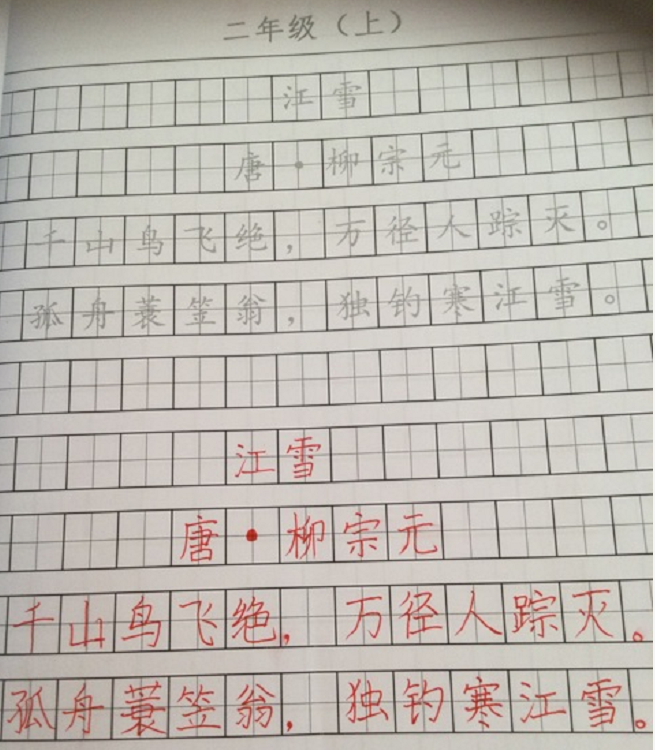 二年级（上）
江雪
唐·柳宗元
千山鸟飞绝，万径人踪灭。
孤舟蓑笠翁，独钓寒江雪。
江雪
唐·柳宗元
千山鸟飞绝，万径人踪灭。
孤舟蓑笠翁，独钓寒江雪。